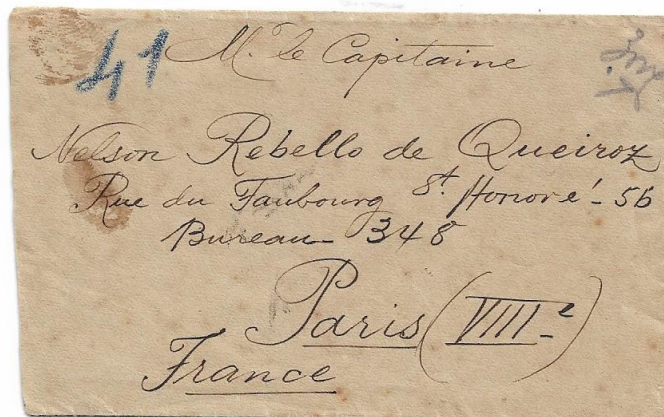 41
M. le Capitaine
Nelson Rebello de Queiroz
Rue du Faubourg St. Honoré - 56
Bureau - 348
Paris (VIIIe)
France